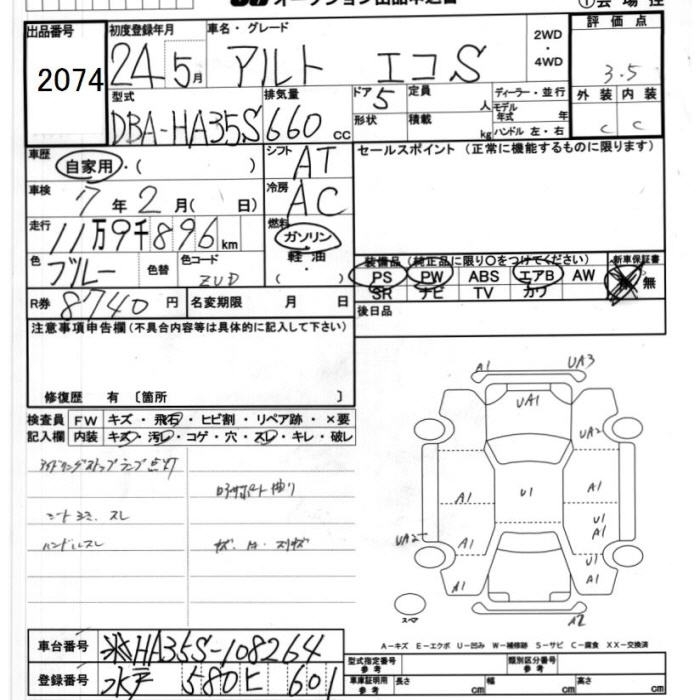 出品番号
2074
初度登録年月
24 5月
車名・グレード
アルト エコS
2WD
・
4WD
評価点
3.5
外装 内装
C C
型式
DBA-HA35S
排気量
660 cc
ドア 5
形状
定員 人
積載 kg
ディーラー・並行
モデル年式 年
ハンドル 左・右
車歴
自家用・( )
シフト
AT
セールスポイント (正常に機能するものに限ります)
車検
7年2月( 日)
冷房
AC
走行
11万9千896km
燃料
ガソリン
軽油
色
ブルー
色替
色コード
ZUD
装備品 (純正品に限り○をつけてください)
PS PW ABS エアB AW
SR ナビ TV カワ
新車保証書
無
R券
8740円
名変期限 月 日
後日品
注意事項申告欄(不具合内容等は具体的に記入して下さい)
修復歴 有 〔箇所 〕
検査員記入欄
FW キズ・飛石・ヒビ割・リペア跡・×要
内装 キズ・汚レ・コゲ・穴・スレ・キレ・破レ
アイドリングストップランプ点灯
シートヨゴレ、スレ
ハンドルスレ
A1 UA3
UA1
UA2
A1 U1 A1
U1
A1
UA2
A1 U1
A1 A1
A2
A-キズ E-エクボ U-凹み W-補修跡 S-サビ C-腐食 XX-交換済
車台番号
HA35S-108264
登録番号
水戸 580 ヒ 601
型式指定番号
参考
類別区分番号
参考
車庫証明用
参考
長さ cm
幅 cm
高さ cm